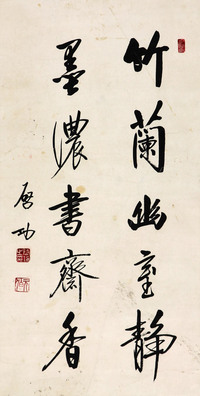 竹蘭幽室静
墨濃書齋香
启功